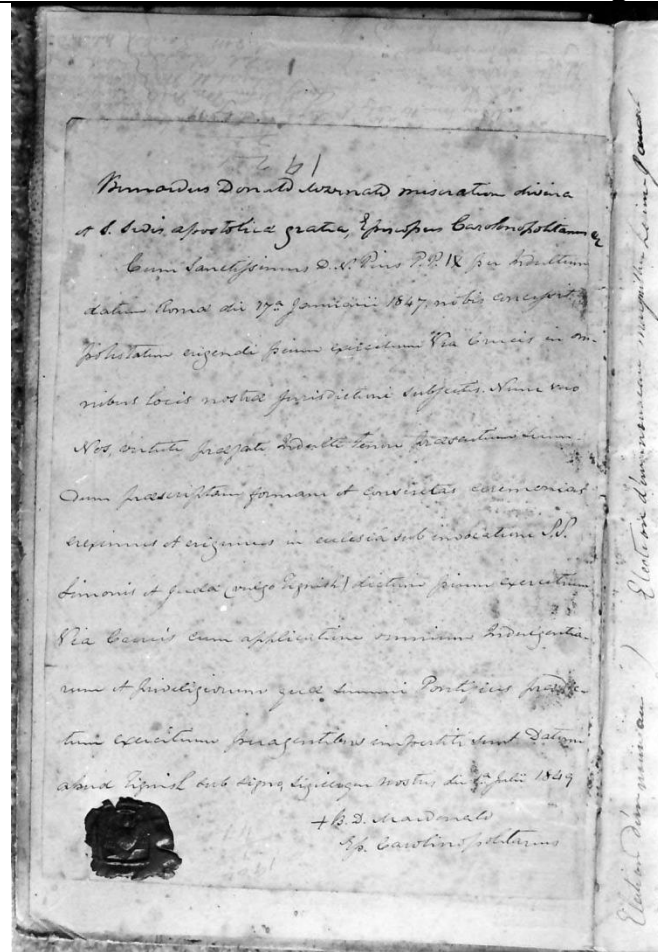 Bernardus Donald McDonald miseratione divina
et S. Sedis apostolicæ gratia, Episcopus Carolinopolitanus &
Cum Sanctissimus D. N. Pius P.P. IX per Indultum
datum Romæ die 17ª Januarii 1847, nobis concessit
potestatem erigendi pium exercitium Via Crucis in om-
nibus locis nostræ jurisdictioni subjectis. Nunc vero
Nos, virtute præfati Indulti tenore præsentium secun-
dum præscriptam formam et consuetas ceremonias
ereximus et erigimus in ecclesia sub invocatione S.S.
Simonis et Juda (vulgo Tignish) dictum pium exercitium
Via Crucis cum applicatione omnium Indulgentia-
rum et privilegiorum quæ Summi Pontifices prædic-
tum exercitium peragentibus impertiti sunt. Datum
apud Tignish sub signo, sigilloque nostris die Julii 1849
+ B. D. MacDonald
Ep. Carolinopolitanus
Election d'un marguillier
Election